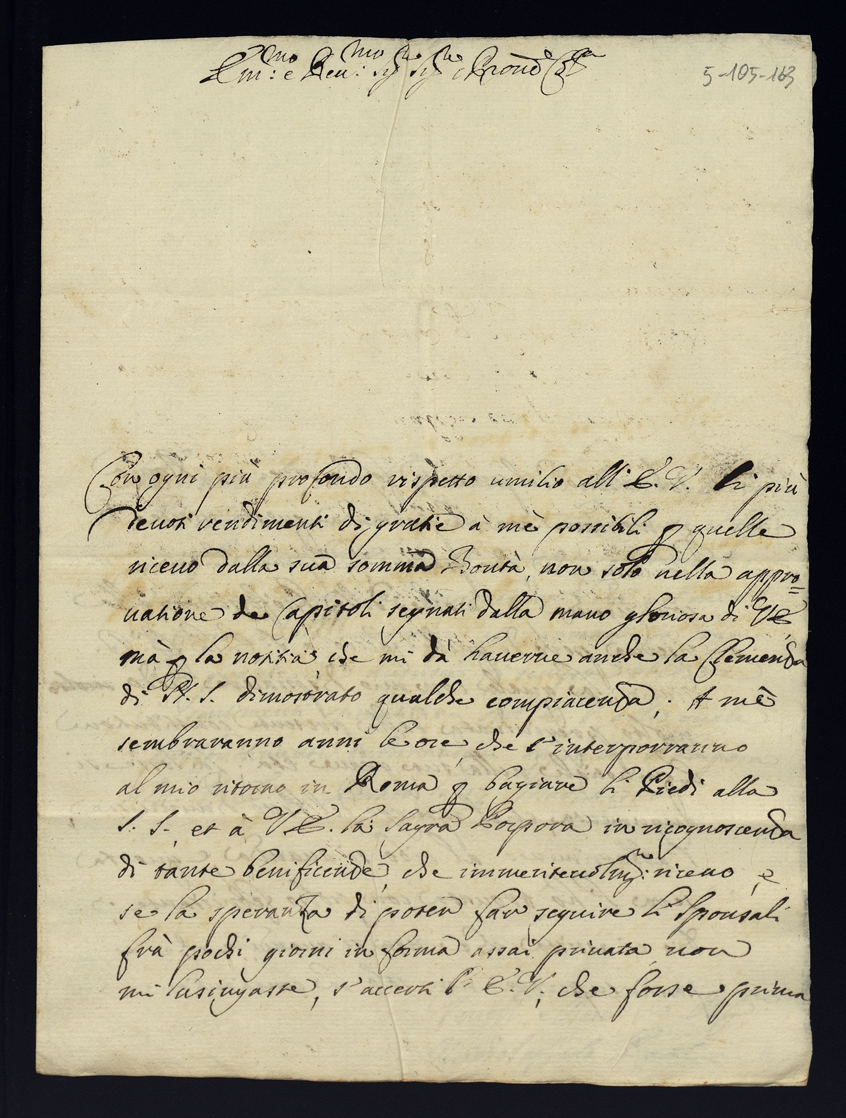 Em:mo e Reu:mo Sig:re Sig:re e Pron:e
5-105-163
Con ogni più profondo rispetto umilio all' E. V. li più
deuoti rendimenti di gratie à me possibili p quelle
riceuo dalla sua somma Bontà, non solo nella appro=
uatione de Capitoli segnati dalla mano gloriosa di VE
mà p la notitia che mi dà hauerne anche la Clemenza
di N. S. dimostrato qualche compiacenza; A mè
sembraranno anni le ore, che s'interporranno
al mio ritorno in Roma p bagiare li Piedi alla
S. S., et à VE. la Sagra Porpora in ricognoscenza
di tante benificenze, che immeriteuolm:te riceuo, e
se la speranza di poter far seguire li Sponsali
frà pochi giorni in forma assai priuata non
mi lusingasse, s'accerti l' E. V., che forse prima